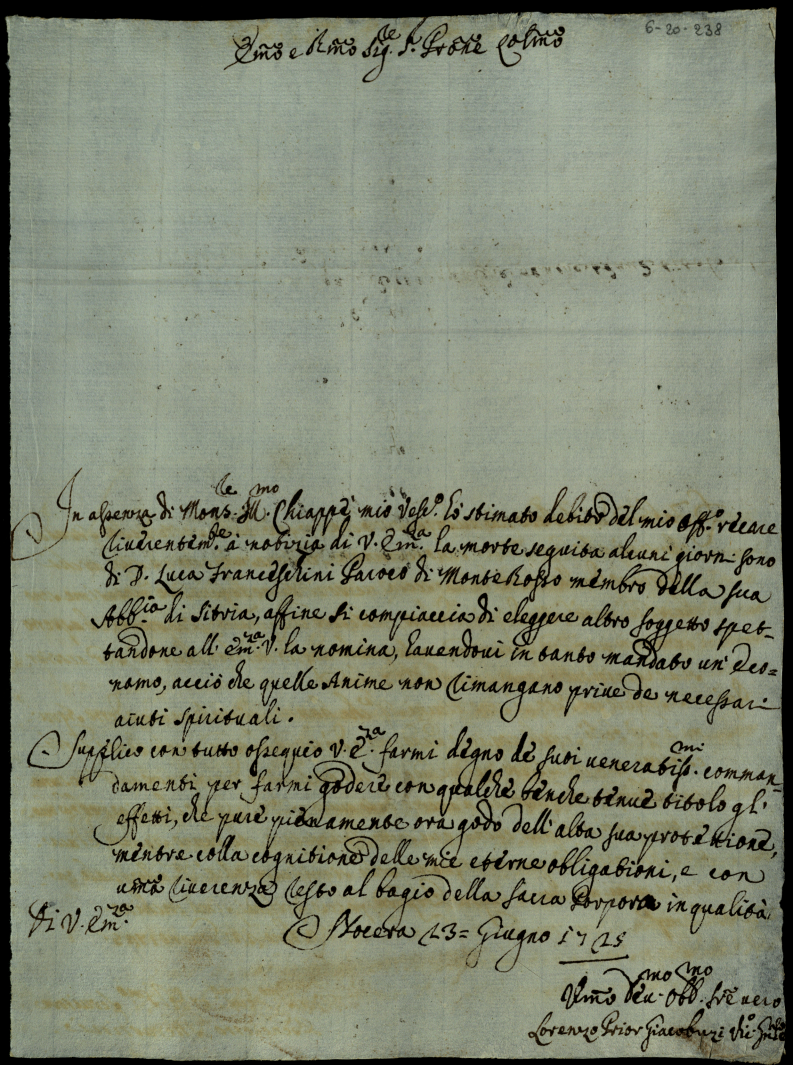 6-20-238
Emo e Rmo Sig.re S.r Prone Colmo
In assenza di Mons.re Ill.mo Chiappè mio Vesc.o hò stimato debito del mio off.o recare
riverentem.te à notizia di V. Em.za la morte seguita alcuni giorni sono
di D. Luca Franceschini Paroco di Monte Rosso membro della sua
Abb.ia di Sitria, affine si compiaccia di eleggere altro soggetto spet-
tandone all' Em.za V. la nomina, havendovi in tanto mandato un' Eco-
nomo, acciò che quelle Anime non rimangano prive de necessari
aiuti spirituali.
Supplico con tutto ossequio V. E.za farmi degno de suoi veneratiss.mi comman-
damenti per farmi godere con qualche benche tenue titolo gl'
effetti, che pure pienamente ora godo dell' alta sua protettione,
mentre colla cognitione delle mie eterne obligationi, e con
uma riverenza resto al bagio della sacra Porpora in qualità
Di V. Em.za
Nocera 23= Giugno 1725
Umo Dev.mo Obb.mo Sre vero
Lorenzo Prior Giacobuzi Vic.o Gnle